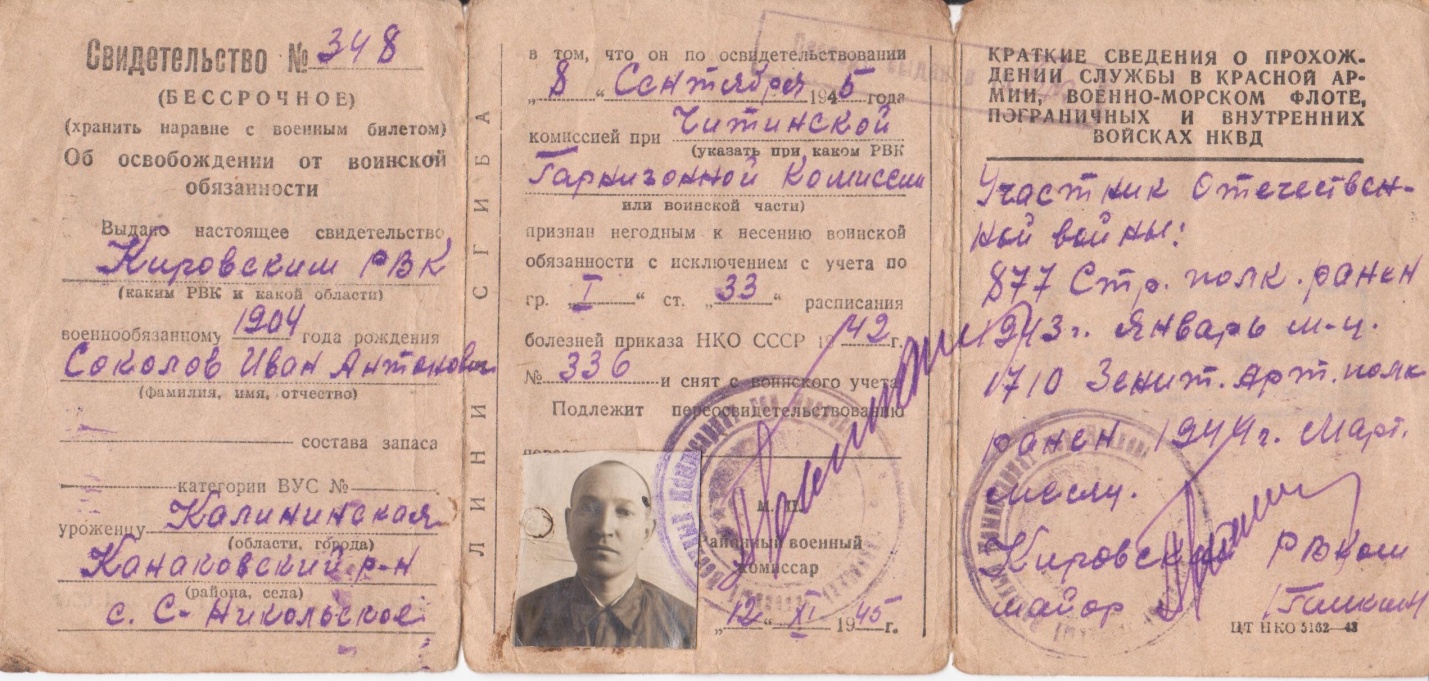 Свидетельство № 348
(БЕССРОЧНОЕ)
(хранить наравне с военным билетом)
Об освобождении от воинской
обязанности
Выдано настоящее свидетельство
Кировским РВК
(каким РВК и какой области)
военнообязанному 1904 года рождения
Соколов Иван Антонович
(фамилия, имя, отчество)
состава запаса
категории ВУС №
уроженцу Калининская
(области, города)
Канаковский р-н
(района, села)
с. С-Никольское
ЛИНИЯ СГИБА
в том, что он по освидетельствовании
„8“ Сентября 1945 года
комиссией при Читинской
(указать при каком РВК
Гарнизонной Комиссии
или воинской части)
признан негодным к несению воинской
обязанности с исключением с учета по
гр. „I“ ст. „33“ расписания
болезней приказа НКО СССР 1942 г.
№ 336 и снят с воинского учета
Подлежит переосвидетельствованию
М. П.
Районный военный
комиссар
„12“ XI 1945 г.
КРАТКИЕ СВЕДЕНИЯ О ПРОХОЖ-
ДЕНИИ СЛУЖБЫ В КРАСНОЙ АР-
МИИ, ВОЕННО-МОРСКОМ ФЛОТЕ,
ПОГРАНИЧНЫХ И ВНУТРЕННИХ
ВОЙСКАХ НКВД
Участник Отечествен-
ной войны:
877 Стр. полк. ранен
1943 г. Январь м-ц.
1710 Зенит. Арт. полк
ранен 1944 г. Март.
месяц.
Кировский РВком
майор /Галкин/
ЦТ НКО 5162—43